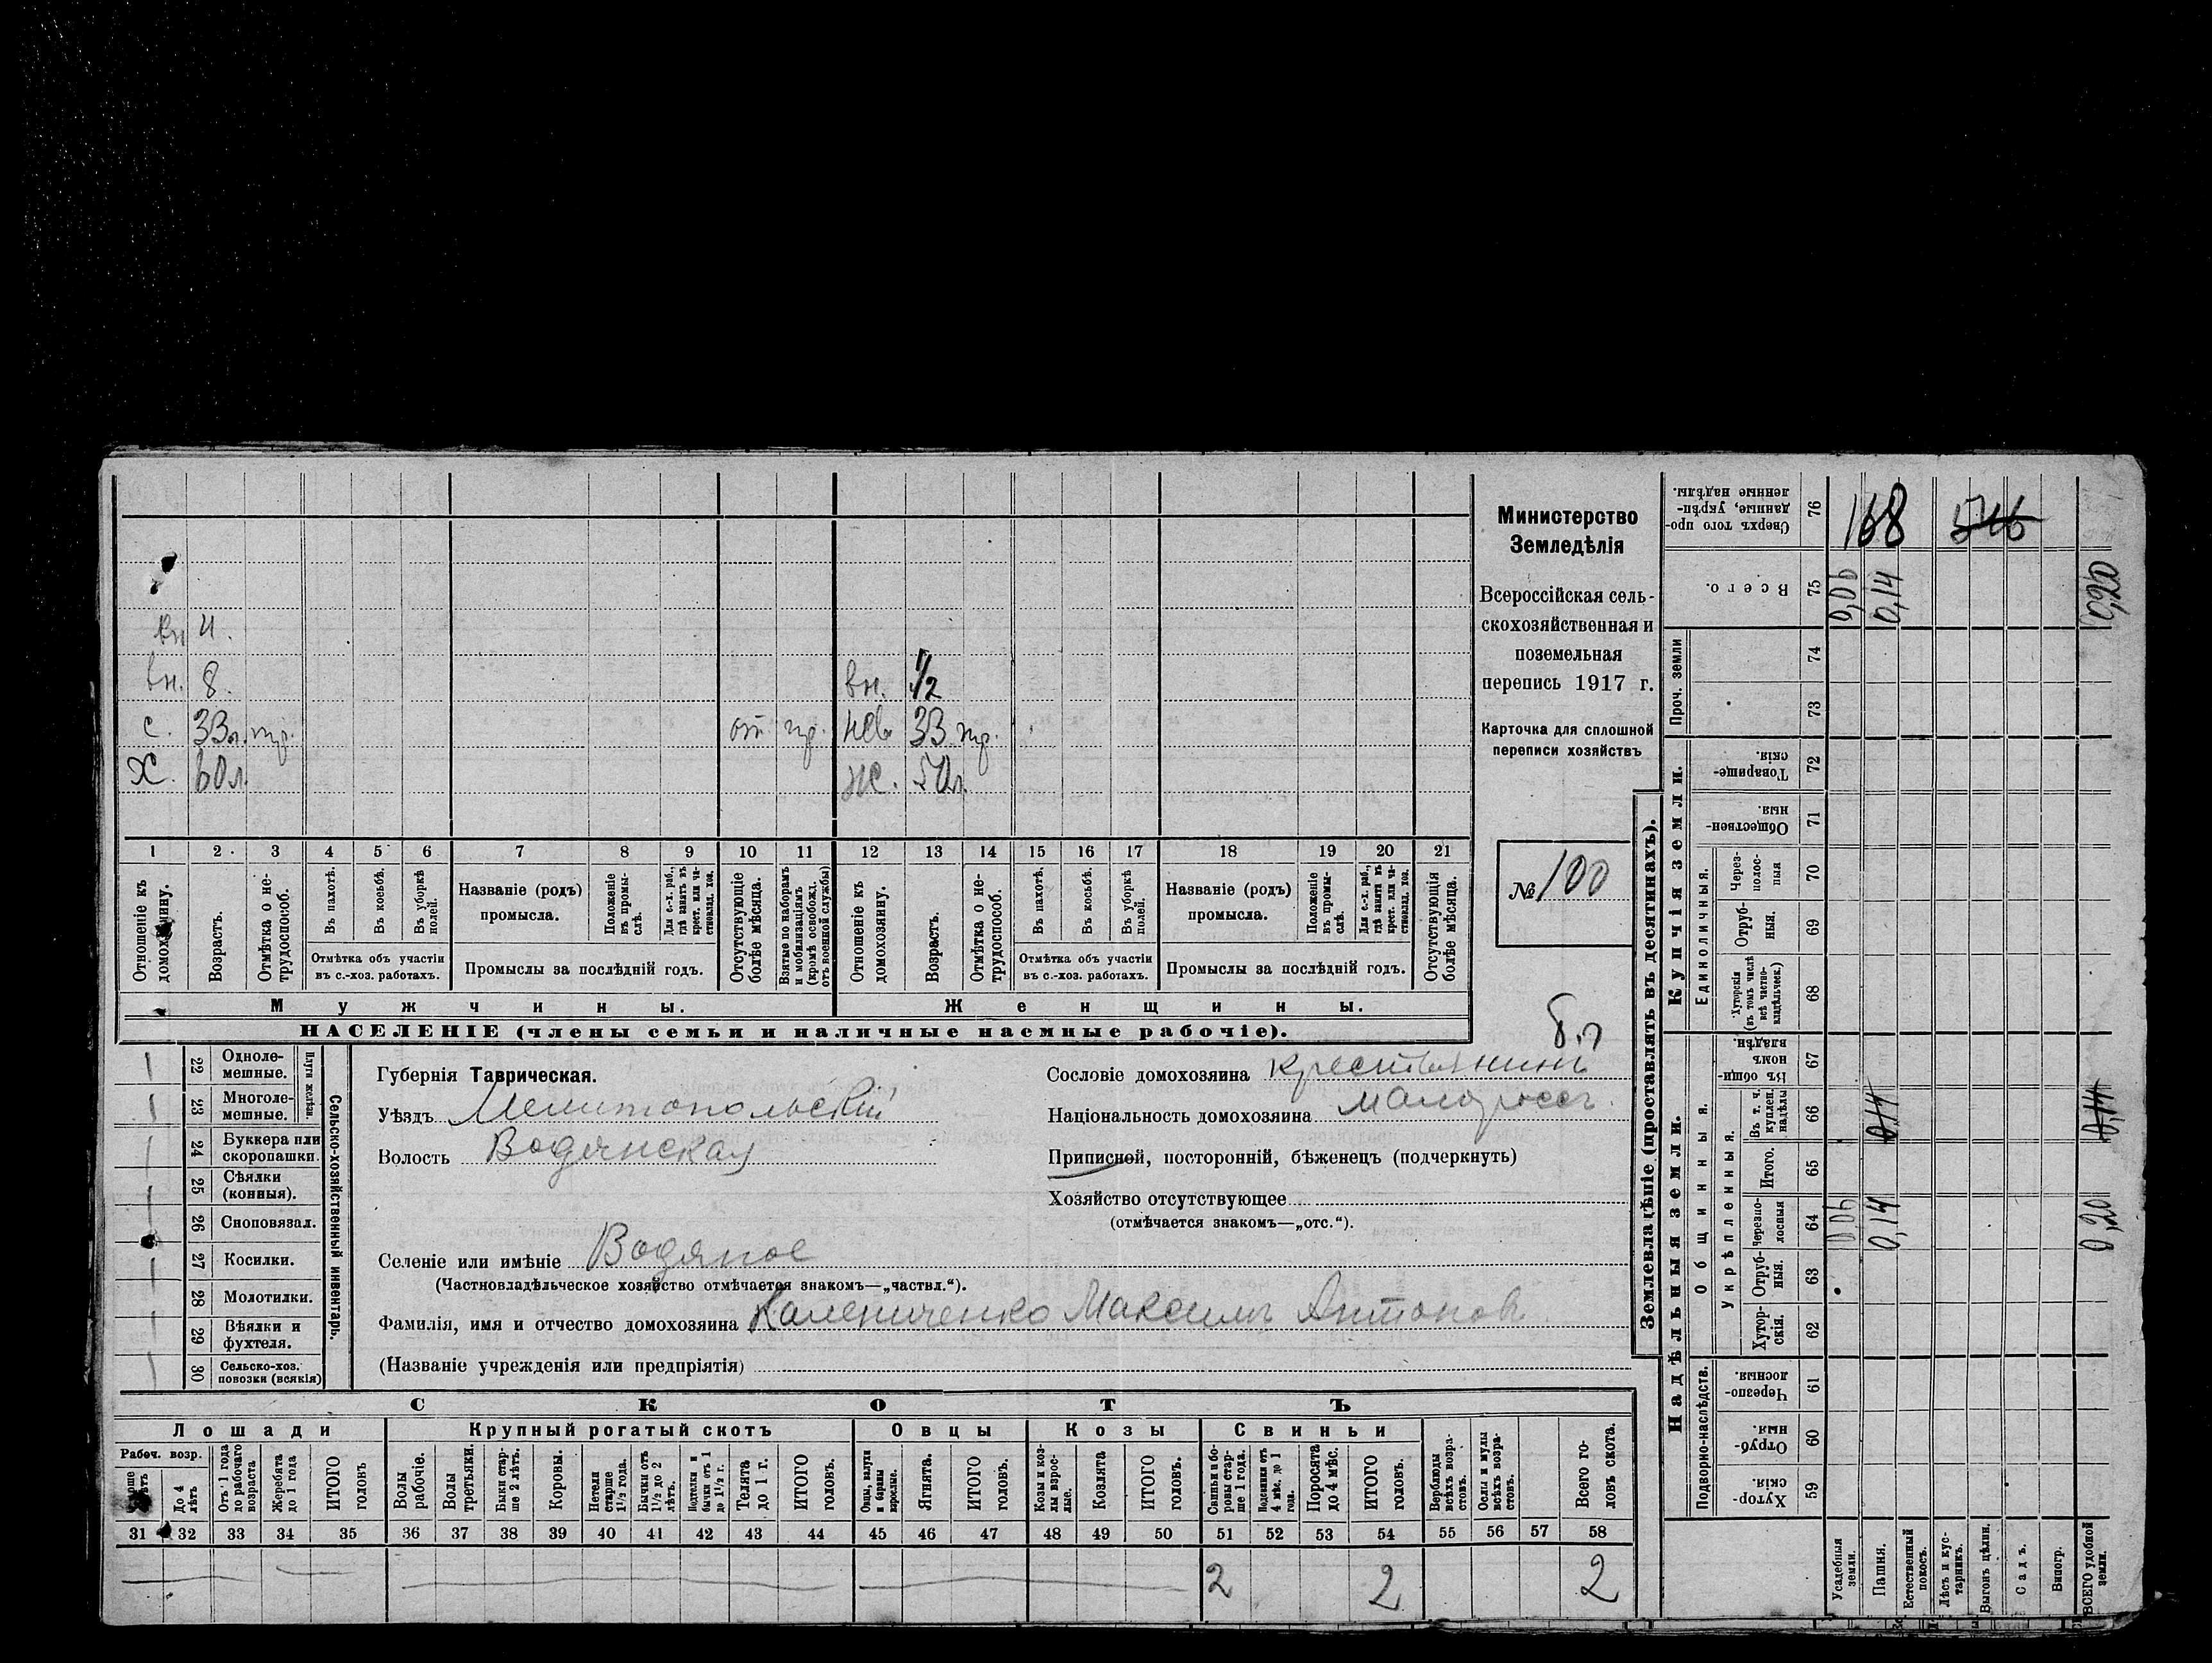 Министерство
Земледѣлія
Всероссійская сель-
скохозяйственная и
поземельная
перепись 1917 г.
Карточка для сплошной
переписи хозяйствъ
№ 100
вн. 8. вн. 1/2
с. 33 л. тр. от пр. нев. 33 тр.
Х. 60 л. ж. 50 л.
1 2 3 4 5 6 7 8 9 10 11 12 13 14 15 16 17 18 19 20 21
Отношеніе къ домохозяину.
Возрастъ.
Отмѣтка о не-трудоспособ.
Въ пахотѣ.
Въ косьбѣ.
Въ уборкѣ полей.
Отмѣтка объ участіи
въ с.-хоз. работахъ.
Названіе (родъ)
промысла.
Положеніе въ промы-слѣ.
Для с.-х. раб., гдѣ занятъ въ крест. или ча-стновлад. хоз.
Промыслы за послѣдній годъ.
Отсутствующіе болѣе мѣсяца.
Взятые по наборамъ и мобилизаціямъ (кромѣ освобожд. отъ военной службы)
Отношеніе къ домохозяину.
Возрастъ.
Отмѣтка о не-трудоспособ.
Въ пахотѣ.
Въ косьбѣ.
Въ уборкѣ полей.
Отмѣтка объ участіи
въ с.-хоз. работахъ.
Названіе (родъ)
промысла.
Положеніе въ промы-слѣ.
Для с.-х. раб., гдѣ занятъ въ крест. или ча-стновлад. хоз.
Промыслы за послѣдній годъ.
Отсутствующія болѣе мѣсяца.
Мужчины. Женщины.
НАСЕЛЕНІЕ (члены семьи и наличные наемные рабочіе).
22 Одноле-мешные.
23 Многоле-мешные.
Плуги желѣзн.
24 Буккера или скоропашки.
25 Сѣялки (конныя).
26 Сноповязал.
27 Косилки.
28 Молотилки.
29 Вѣялки и фухтеля.
30 Сельско-хоз. повозки (всякія)
Сельско-хозяйственный инвентарь.
Губернія Таврическая.
Уѣздъ Мелитопольскій
Волость Водянская
Селеніе или имѣніе Водяное
(Частновладѣльческое хозяйство отмѣчается знакомъ—„частвл.“).
Фамилія, имя и отчество домохозяина Калениченко Максимъ Антонов.
(Названіе учрежденія или предпріятія)
Сословіе домохозяина крестьянинъ
Національность домохозяина малоросс.
Приписной, посторонній, бѣженецъ (подчеркнуть)
Хозяйство отсутствующее
(отмѣчается знакомъ—„отс.“).
СКОТЪ
Лошади Крупный рогатый скотъ Овцы Козы Свиньи
Рабоч. возр.
До 4 лѣтъ
Отъ 1 года до рабочаго возраста
Жеребята до 1 года
ИТОГО головъ
Волы рабочіе.
Волы третьяки.
Быки стар-ше 2 лѣтъ.
Коровы.
Нетели старше 1½ года.
Бычки отъ 1½ до 2 лѣтъ.
Нетелки и бычки отъ 1 до 1½ г.
Телята до 1 г.
ИТОГО головъ.
Овцы, валухи и бараны взрослые.
Ягнята.
ИТОГО головъ.
Козы и коз-лы взрос-лые.
Козлята
ИТОГО головъ.
Свиньи и бо-ровы стар-ше 1 года.
Подсвинки отъ 4 мѣс. до 1 года.
Поросята до 4 мѣс.
ИТОГО головъ.
Верблюды всѣхъ возра-стовъ.
Ослы и мулы всѣхъ возра-стовъ.
Всего го-ловъ скота.
31 32 33 34 35 36 37 38 39 40 41 42 43 44 45 46 47 48 49 50 51 52 53 54 55 56 57 58
2 2 2
Землевладѣніе (проставлять въ десятинахъ).
Надѣльныя земли. Купчія земли. Проч. земли
Подворно-наслѣдств. Общинныя. Укрѣпленныя. Единоличныя.
76 Сверхъ того про-данные, укрѣп-ленные надѣлы. 168 546
75 Всего. 0,06 0,14 0,20
74
73
72 Товарище-скія
71 Обществен-ныя
70 Через-полос-ныя
69 Отруб-ныя.
68 Хуторскія (въ томъ числѣ всѣ частно-владѣльческ.)
67 Въ общин-номъ владѣн.
66 Въ т. ч. куплен. надѣлы 0,14 0,14
65 Итого.
64 Черезпо-лосныя 0,06 0,14 0,20
63 Отруб-ныя.
62 Хутор-скія.
61 Черезпо-лосныя.
60 Отруб-ныя.
59 Хутор-скія.
Усадебныя земли.
Пашня.
Естественный покосъ.
Лѣсъ и кус-тарникъ.
Выгонъ цѣлин.
Садъ.
Виногр.
ВСЕГО удобной земли.